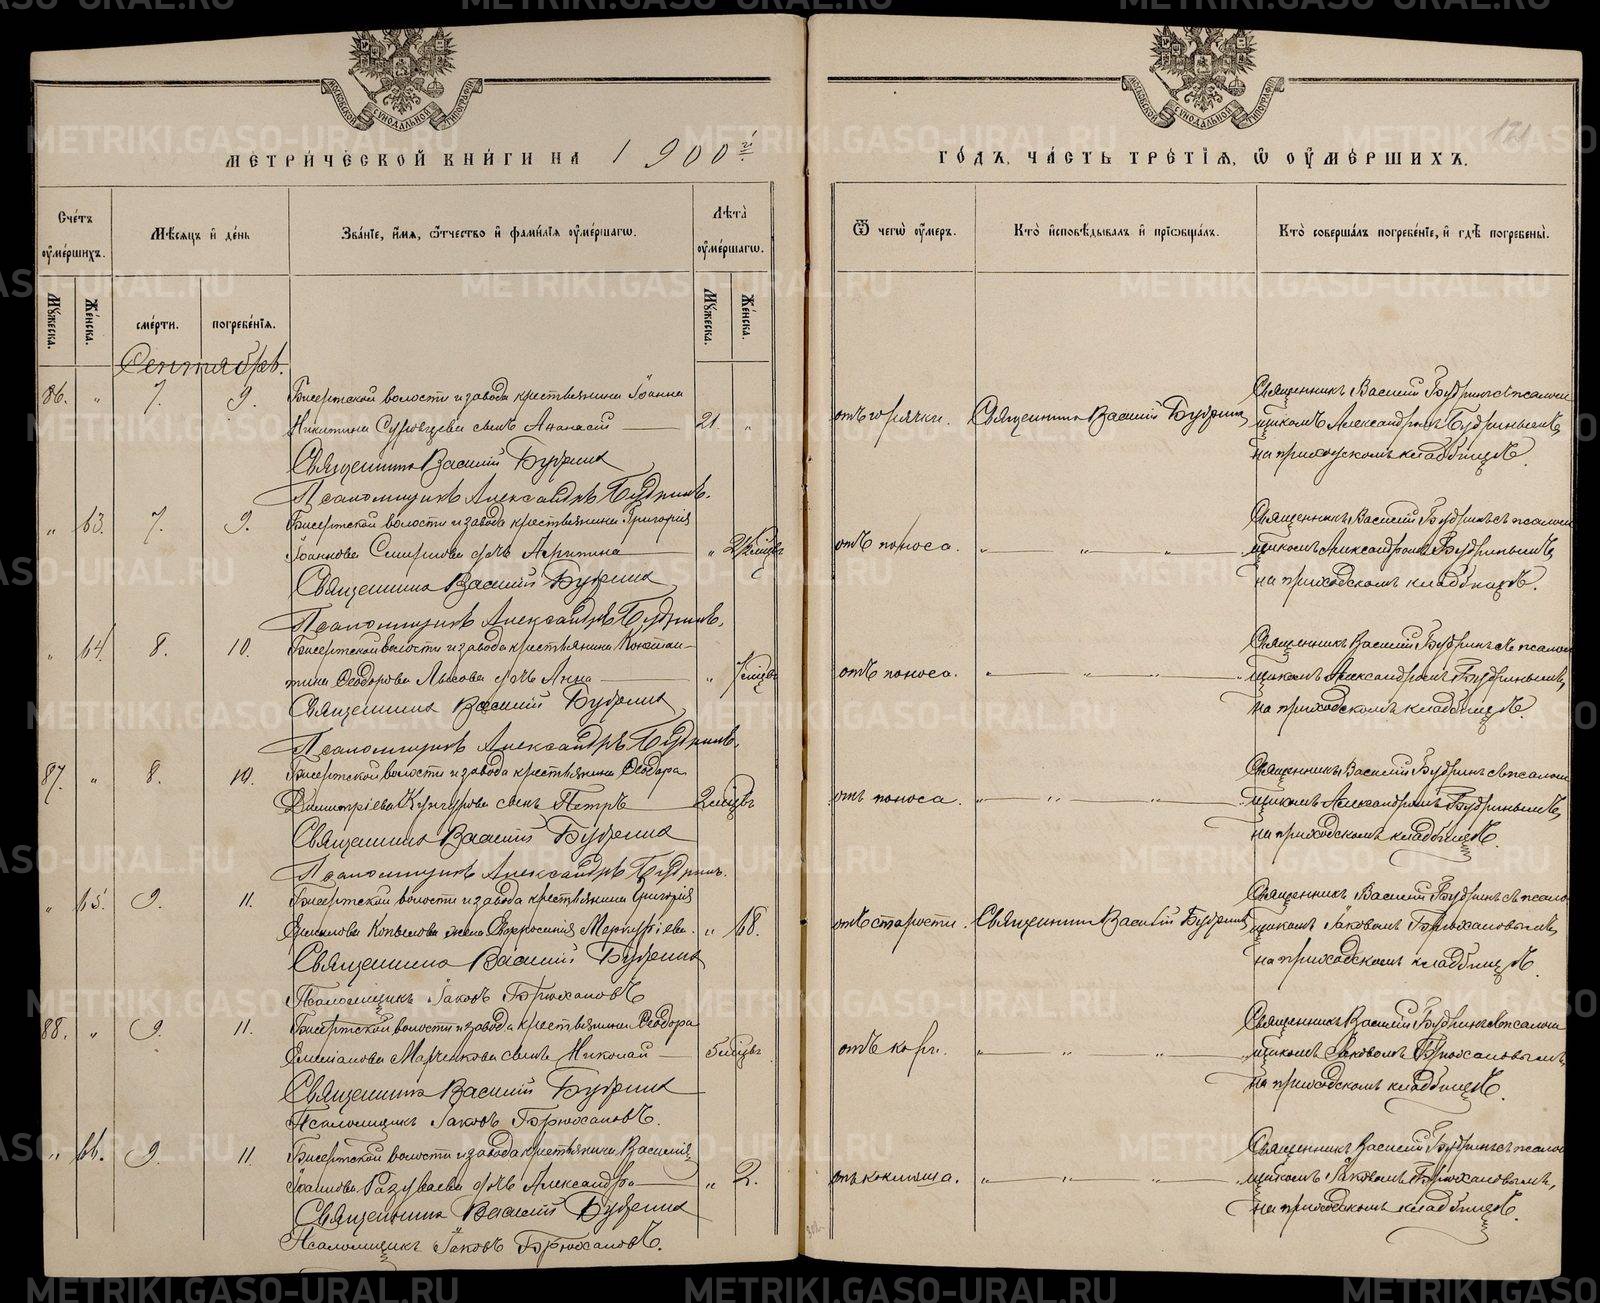 МЕТРИЧЕСКОЙ КНИГИ НА 1900й
ГОДЪ, ЧАСТЬ ТРЕТІЯ, Ѿ ОУМЕРШИХЪ.
МОСКОВСКОЙ СѴНОДАЛЬНОЙ ТИПОГРАФІИ
Счетъ оумершихъ.
Мѣсяцъ и день
Званіе, имя, ѻтчество и фамилія оумершагѡ.
Лѣта оумершагѡ.
Мужеска.
Женска.
смерти.
погребенія.
Мужеска.
Женска.
Ѿ чегѡ оумеръ.
Кто исповѣдывалъ и пріѡбщалъ.
Кто совершалъ погребеніе, и гдѣ погребены.
Сентябрь.
86. " 7. 9. Бисертской волости и завода крестьянина Іоанна
Никитина сынъ Аѳанасій 21. "
Священникъ Василій Будринъ
Псаломщикъ Александръ Будринъ.
отъ горячки. Священникъ Василій Будринъ
Священникъ Василій Будринъ съ псалом
щикомъ Александромъ Будринымъ,
на приходскомъ кладбищѣ.
" 63. 7. 9. Бисертской волости и завода крестьянина Григорія
Іоаннова Смирнова дочь " мѣсцъ
Священникъ Василій Будринъ
Псаломщикъ Александръ Будринъ.
отъ поноса. " " "
Священникъ Василій Будринъ съ псалом
щикомъ Александромъ Будринымъ,
на приходскомъ кладбищѣ.
" 64. 8. 10. Бисертской волости и завода крестьянина Констан-
тина Ѳеодорова Лысова дочь Анна "
Священникъ Василій Будринъ
Псаломщикъ Александръ Будринъ.
отъ поноса. " " " "
Священникъ Василій Будринъ съ псалом
щикомъ Александромъ Будринымъ,
на приходскомъ кладбищѣ.
87. " 8. 10. Бисертской волости и завода крестьянина Ѳеодора
Димитріева Кунгурова сынъ Петръ 2 мѣсцъ
Священникъ Василій Будринъ
Псаломщикъ Александръ Будринъ.
отъ поноса. " " "
Священникъ Василій Будринъ съ псалом
щикомъ Александромъ Будринымъ,
на приходскомъ кладбищѣ.
" 65. 9. 11. Бисертской волости и завода крестьянина Григорія
Копылова жена Евфросинія " 68.
Священникъ Василій Будринъ
Псаломщикъ Іаковъ Брюхановъ
отъ старости. Священникъ Василій Будринъ
Священникъ Василій Будринъ съ псалом
щикомъ Іаковомъ Брюхановымъ,
на приходскомъ кладбищѣ.
88. " 9. 11. Бисертской волости и завода крестьянина Ѳеодора
Емеліанова сынъ Николай 5 мѣсцъ
Священникъ Василій Будринъ
Псаломщикъ Іаковъ Брюхановъ.
отъ кори. " " "
Священникъ Василій Будринъ съ псалом
щикомъ Іаковомъ Брюхановымъ,
на приходскомъ кладбищѣ.
" 66. 9. 11. Бисертской волости и завода крестьянина Василія
Іоаннова Разуваева дочь Александра " 2.
Священникъ Василій Будринъ
Псаломщикъ Іаковъ Брюхановъ.
отъ коклюша. " " "
Священникъ Василій Будринъ съ псалом
щикомъ Іаковомъ Брюхановымъ,
на приходскомъ кладбищѣ.
METRIKI.GASO-URAL.RU